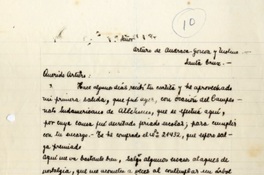 10
Señor
Arturo de Andraca-Gorcea y Molina
Santa Cruz.-
Querido Arturo:
Hace algunos días recibí tu cartita y he aprovechado
mi primera salida, que fué ayer, con ocasión del Campeo-
nato Sudamericano de Atletismo, que se efectuó aquí,
por cuya causa fué decretado feriado escolar, para cumplir
con tu encargo. Te he comprado el Nº 29432, que espero sal-
ga premiado
Aquí me va bastante bien, salgo algunos escasos ataques de
nostalgia, que me acometen a veces al contemplar un árbol